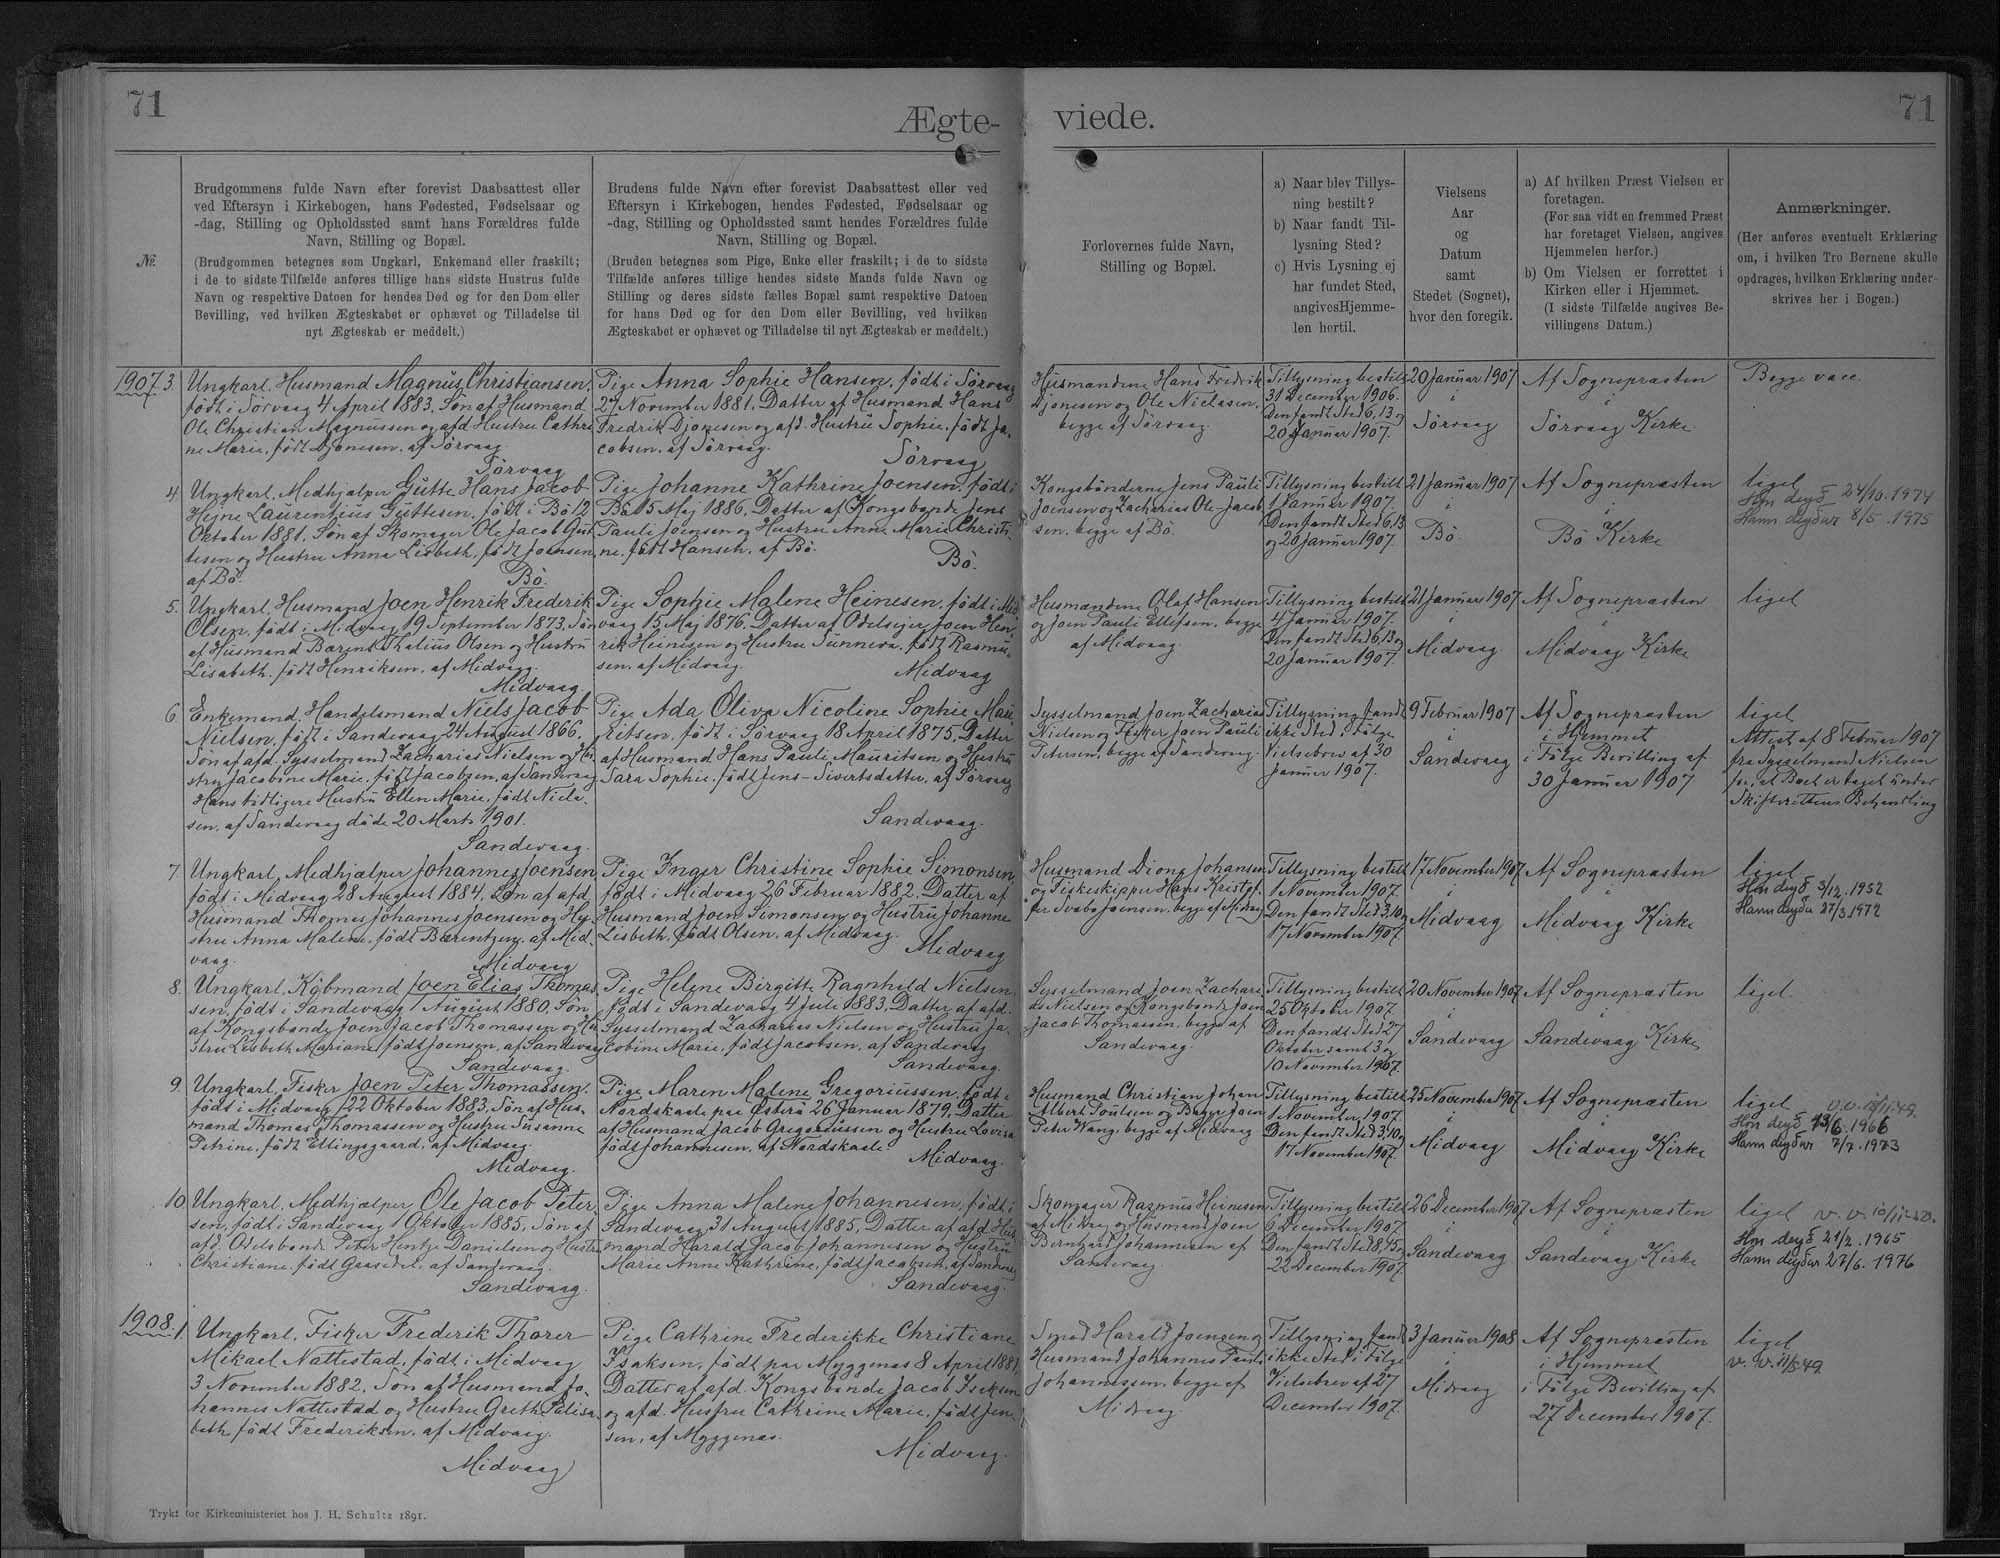 71
Ægte-
viede.
71
Nr.
Brudgommens fulde Navn efter forevist Daabsattest eller
ved Eftersyn i Kirkebogen, hans Fødested, Fødselsaar og
-dag, Stilling og Opholdssted samt hans Forældres fulde
Navn, Stilling og Bopæl.
(Brudgommen betegnes som Ungkarl, Enkemand eller fraskilt;
i de to sidste Tilfælde anføres tillige hans sidste Hustrus fulde
Navn og respektive Datoen for hendes Død og for den Dom eller
Bevilling, ved hvilken Ægteskabet er ophævet og Tilladelse til
nyt Ægteskab er meddelt.)
Brudens fulde Navn efter forevist Daabsattest eller ved
Eftersyn i Kirkebogen, hendes Fødested, Fødselsaar og
-dag, Stilling og Opholdssted samt hendes Forældres fulde
Navn, Stilling og Bopæl.
(Bruden betegnes som Pige, Enke eller fraskilt; i de to sidste
Tilfælde anføres tillige hendes sidste Mands fulde Navn og
Stilling og deres sidste fælles Bopæl samt respektive Datoen
for hans Død og for den Dom eller Bevilling, ved hvilken
Ægteskabet er ophævet og Tilladelse til nyt Ægteskab er meddelt.)
Forlovernes fulde Navn,
Stilling og Bopæl.
a) Naar blev Tillys-
ning bestilt?
b) Naar fandt Til-
lysning Sted?
c) Hvis Lysning ej
har fundet Sted,
angives Hjemme-
len hertil.
Vielsens
Aar
og
Datum
samt
Stedet (Sognet),
hvor den foregik.
a) Af hvilken Præst Vielsen er
foretagen.
(For saa vidt en fremmed Præst
har foretaget Vielsen, angives
Hjemmelen herfor.)
b) Om Vielsen er forrettet i
Kirken eller i Hjemmet.
(I sidste Tilfælde angives Be-
villingens Datum.)
Anmærkninger.
(Her anføres eventuelt Erklæring
om, i hvilken Tro Børnene skulle
opdrages, hvilken Erklæring under-
skrives her i Bogen.)
1907. 3.
Ungkarl, Husmand Magnus Christiansen,
født i Sörvaag 4 April 1883. Søn af Husmand
Ole Christian Magnussen og afd. Hustru Cathri-
ne Marie, født Djonesen, af Sörvaag.
Sörvaag
Pige Anna Sophie Hansen, født i Sörvaag
27 November 1881. Datter af Husmand Hans
Fredrik Djonesen og afd. Hustru Sophie, født Ja-
cobsen, af Sörvaag.
Sörvaag
Husmændene Hans Fredrik
Djonesen og Ole Nielasen,
begge af Sörvaag.
Tillysning bestilt
31 December 1906.
Den fandt Sted 6, 13 og
20 Januar 1907.
20 Januar 1907
i
Sörvaag
Af Sognepræsten
i
Sörvaag Kirke.
Begge vacc.
4.
Ungkarl, Medhjælper Gutte Hans Jacob
Hejne Laurentius Guttesen, født i Bö 12
Oktober 1881. Søn af Skomager Ole Jacob Gut-
tesen og Hustru Anna Lisbeth, født Joensen,
af Bö.
Bö.
Pige Johanne Kathrine Joensen, født i
Bö 15 Maj 1886. Datter af Kongsbonde Jens
Pauli Joensen og Hustru Anne Marie Christi-
ne, født Hansen, af Bö.
Bö.
Kongsbönderne Jens Pauli
Joensen og Zacharias Ole Jacob-
sen, begge af Bö.
Tillysning bestilt
1 Januar 1907.
Den fandt Sted 6, 13
og 20 Januar 1907.
21 Januar 1907
i
Bö.
Af Sognepræsten
i
Bö Kirke
ligel
Hon deyð 24/10.1974
Hann deyður 8/5.1975
5.
Ungkarl, Husmand Joen Henrik Frederik
Olsen, født i Midvaag 19 September 1873. Søn
af Husmand Barent Thalius Olsen og Hustru
Lisabeth, født Henriksen, af Midvaag.
Midvaag
Pige Sophie Malene Heinesen, født i Mid-
vaag 15 Maj 1876. Datter af Odelsejer Joen Hen-
rik Heinesen og Hustru Sunneva, født Rasmus-
sen, af Midvaag.
Midvaag
Husmændene Olaf Hansen
og Joen Pauli Ellefsen, begge
af Midvaag.
Tillysning bestilt
4 Januar 1907.
Den fandt Sted 6, 13 og
20 Januar 1907.
21 Januar 1907
i
Midvaag
Af Sognepræsten
i
Midvaag Kirke
ligel
6.
Enkemand, Handelsmand Niels Jacob
Nielsen, født i Sandevaag 24 August 1866.
Søn af afd. Sysselmand Zacharias Nielsen og Hu-
stru Jacobine Marie, født Jacobsen, af Sandevaag
Hans tidligere Hustru Ellen Marie, født Niel-
sen, af Sandevaag døde 20 Marts 1901.
Sandevaag.
Pige Ada Oliva Nicoline Sophie Mau-
ritsen, født i Sörvaag 18 April 1875. Datter
af Husmand Hans Pauli Mauritsen og Hustru
Sara Sophie, født Jens-Sivertsdatter, af Sörvaag
Sandevaag.
Sysselmand Joen Zacharias
Nielsen og Fisker Joen Pauli
Petersen, begge af Sandevaag.
Tillysning fandt
ikke Sted i Følge
Vielsebrev af 30
Januar 1907.
9 Februar 1907
i
Sandevaag
Af Sognepræsten
i Hjemmet
i Følge Bevilling af
30 Januar 1907
ligel
Attest af 8 Februar 1907
fra Sysselmand Nielsen
for, at Boet er taget under
Skifterettens Behandling
7.
Ungkarl, Medhjælper Johannes Joensen,
født i Midvaag 28 August 1884. Søn af afd.
Husmand Thomas Johannes Joensen og Hu-
stru Anna Malene, født Barentzen, af Mid-
vaag.
Midvaag
Pige Inger Christine Sophie Simonsen,
født i Midvaag 26 Februar 1882. Datter af
Husmand Joen Simonsen og Hustru Johanne
Lisbeth, født Olsen, af Midvaag.
Midvaag
Husmand Dione Johansen
og Fiskeskipper Hans Kristof-
fer Svabo Joensen, begge af Midvaag
Tillysning bestilt
1 November 1907.
Den fandt Sted 3, 10 og
17 November 1907.
17 November 1907
i
Midvaag
Af Sognepræsten
i
Midvaag Kirke
ligel
Hon deyð 3/12.1952
Hann deyður 27/3.1972
8.
Ungkarl, Købmand Joen Elias Thomas-
sen, født i Sandevaag 1 August 1880. Søn
af Kongsbonde Joen Jacob Thomassen og Hu-
stru Lisbeth Mariane, født Joensen, af Sandevaag
Sandevaag.
Pige Helene Birgitte Ragnhild Nielsen,
født i Sandevaag 4 Juli 1883. Datter af afd.
Sysselmand Zacharias Nielsen og Hustru Ja-
cobine Marie, født Jacobsen, af Sandevaag
Sandevaag.
Sysselmand Joen Zachari-
as Nielsen og Kongsbonde Joen
Jacob Thomassen, begge af
Sandevaag.
Tillysning bestilt
25 Oktober 1907.
Den fandt Sted 27
Oktober samt 3 og
10 November 1907.
20 November 1907
i
Sandevaag
Af Sognepræsten
i
Sandevaag Kirke
ligel.
9.
Ungkarl, Fisker Joen Peter Thomassen,
født i Midvaag 22 Oktober 1883. Søn af Hus-
mand Thomas Thomassen og Hustru Susanne
Petrine, født Ellingsgaard, af Midvaag.
Midvaag.
Pige Maren Malene Gregoriussen, født i
Nordskaale paa Österö 26 Januar 1879. Datter
af Husmand Jacob Gregoriussen og Hustru Lovisa
født Johannesen, af Nordskaale.
Midvaag.
Husmand Christian Johan
Albert Poulsen og Bager Joen
Peter Wang, begge af Midvaag
Tillysning bestilt
1 November 1907.
Den fandt Sted 3, 10 og
17 November 1907.
25 November 1907
i
Midvaag
Af Sognepræsten
i
Midvaag Kirke
ligel v.v. 18/11.49.
Hon deyð 13/6.1966
Hann deyður 7/7.1973
10.
Ungkarl, Medhjælper Ole Jacob Peter-
sen, født i Sandevaag 1 Oktober 1885. Søn af
afd. Odelsbonde Peter Hentze Danielsen og Hustru
Christiane, født Gaasedal, af Sandevaag.
Sandevaag.
Pige Anna Malene Johannesen, født i
Sandevaag 31 August 1885. Datter af afd. Hus-
mand Harald Jacob Johannesen og Hustru
Marie Anne Kathrine, født Jacobsen, af Sandevaag
Sandevaag.
Skomager Rasmus Heinesen
af Midvaag og Husmand Joen
Bernhard Johannesen af
Sandevaag.
Tillysning bestilt
6 December 1907.
Den fandt Sted 8, 15 og
22 December 1907.
26 December 1907
i
Sandevaag
Af Sognepræsten
i
Sandevaag Kirke
ligel v.v. 10/11-50.
Hon deyð 21/2.1965
Hann deyður 27/6.1976
1908. 1.
Ungkarl, Fisker Frederik Thorer
Mikael Nattestad, født i Midvaag
3 November 1882. Søn af Husmand Jo-
hannes Nattestad og Hustru Greth Elisa-
beth, født Frederiksen, af Midvaag.
Midvaag
Pige Cathrine Frederikke Christiane
Isaksen, født paa Myggenæs 8 April 1881.
Datter af afd. Kongsbonde Jacob Isaksen
og afd. Hustru Cathrine Marie, født Jen-
sen, af Myggenæs.
Midvaag.
Smed Harald Joensen og
Husmand Johannes Pauli
Johannessen, begge af
Midvaag.
Tillysning fandt
ikke Sted i Følge
Vielsebrev af 27
December 1907.
3 Januar 1908
i
Midvaag
Af Sognepræsten
i Hjemmet
i Følge Bevilling af
27 December 1907.
ligel
v.v. 11/5.49.
Trykt for Kirkeministeriet hos J. H. Schultz 1891.